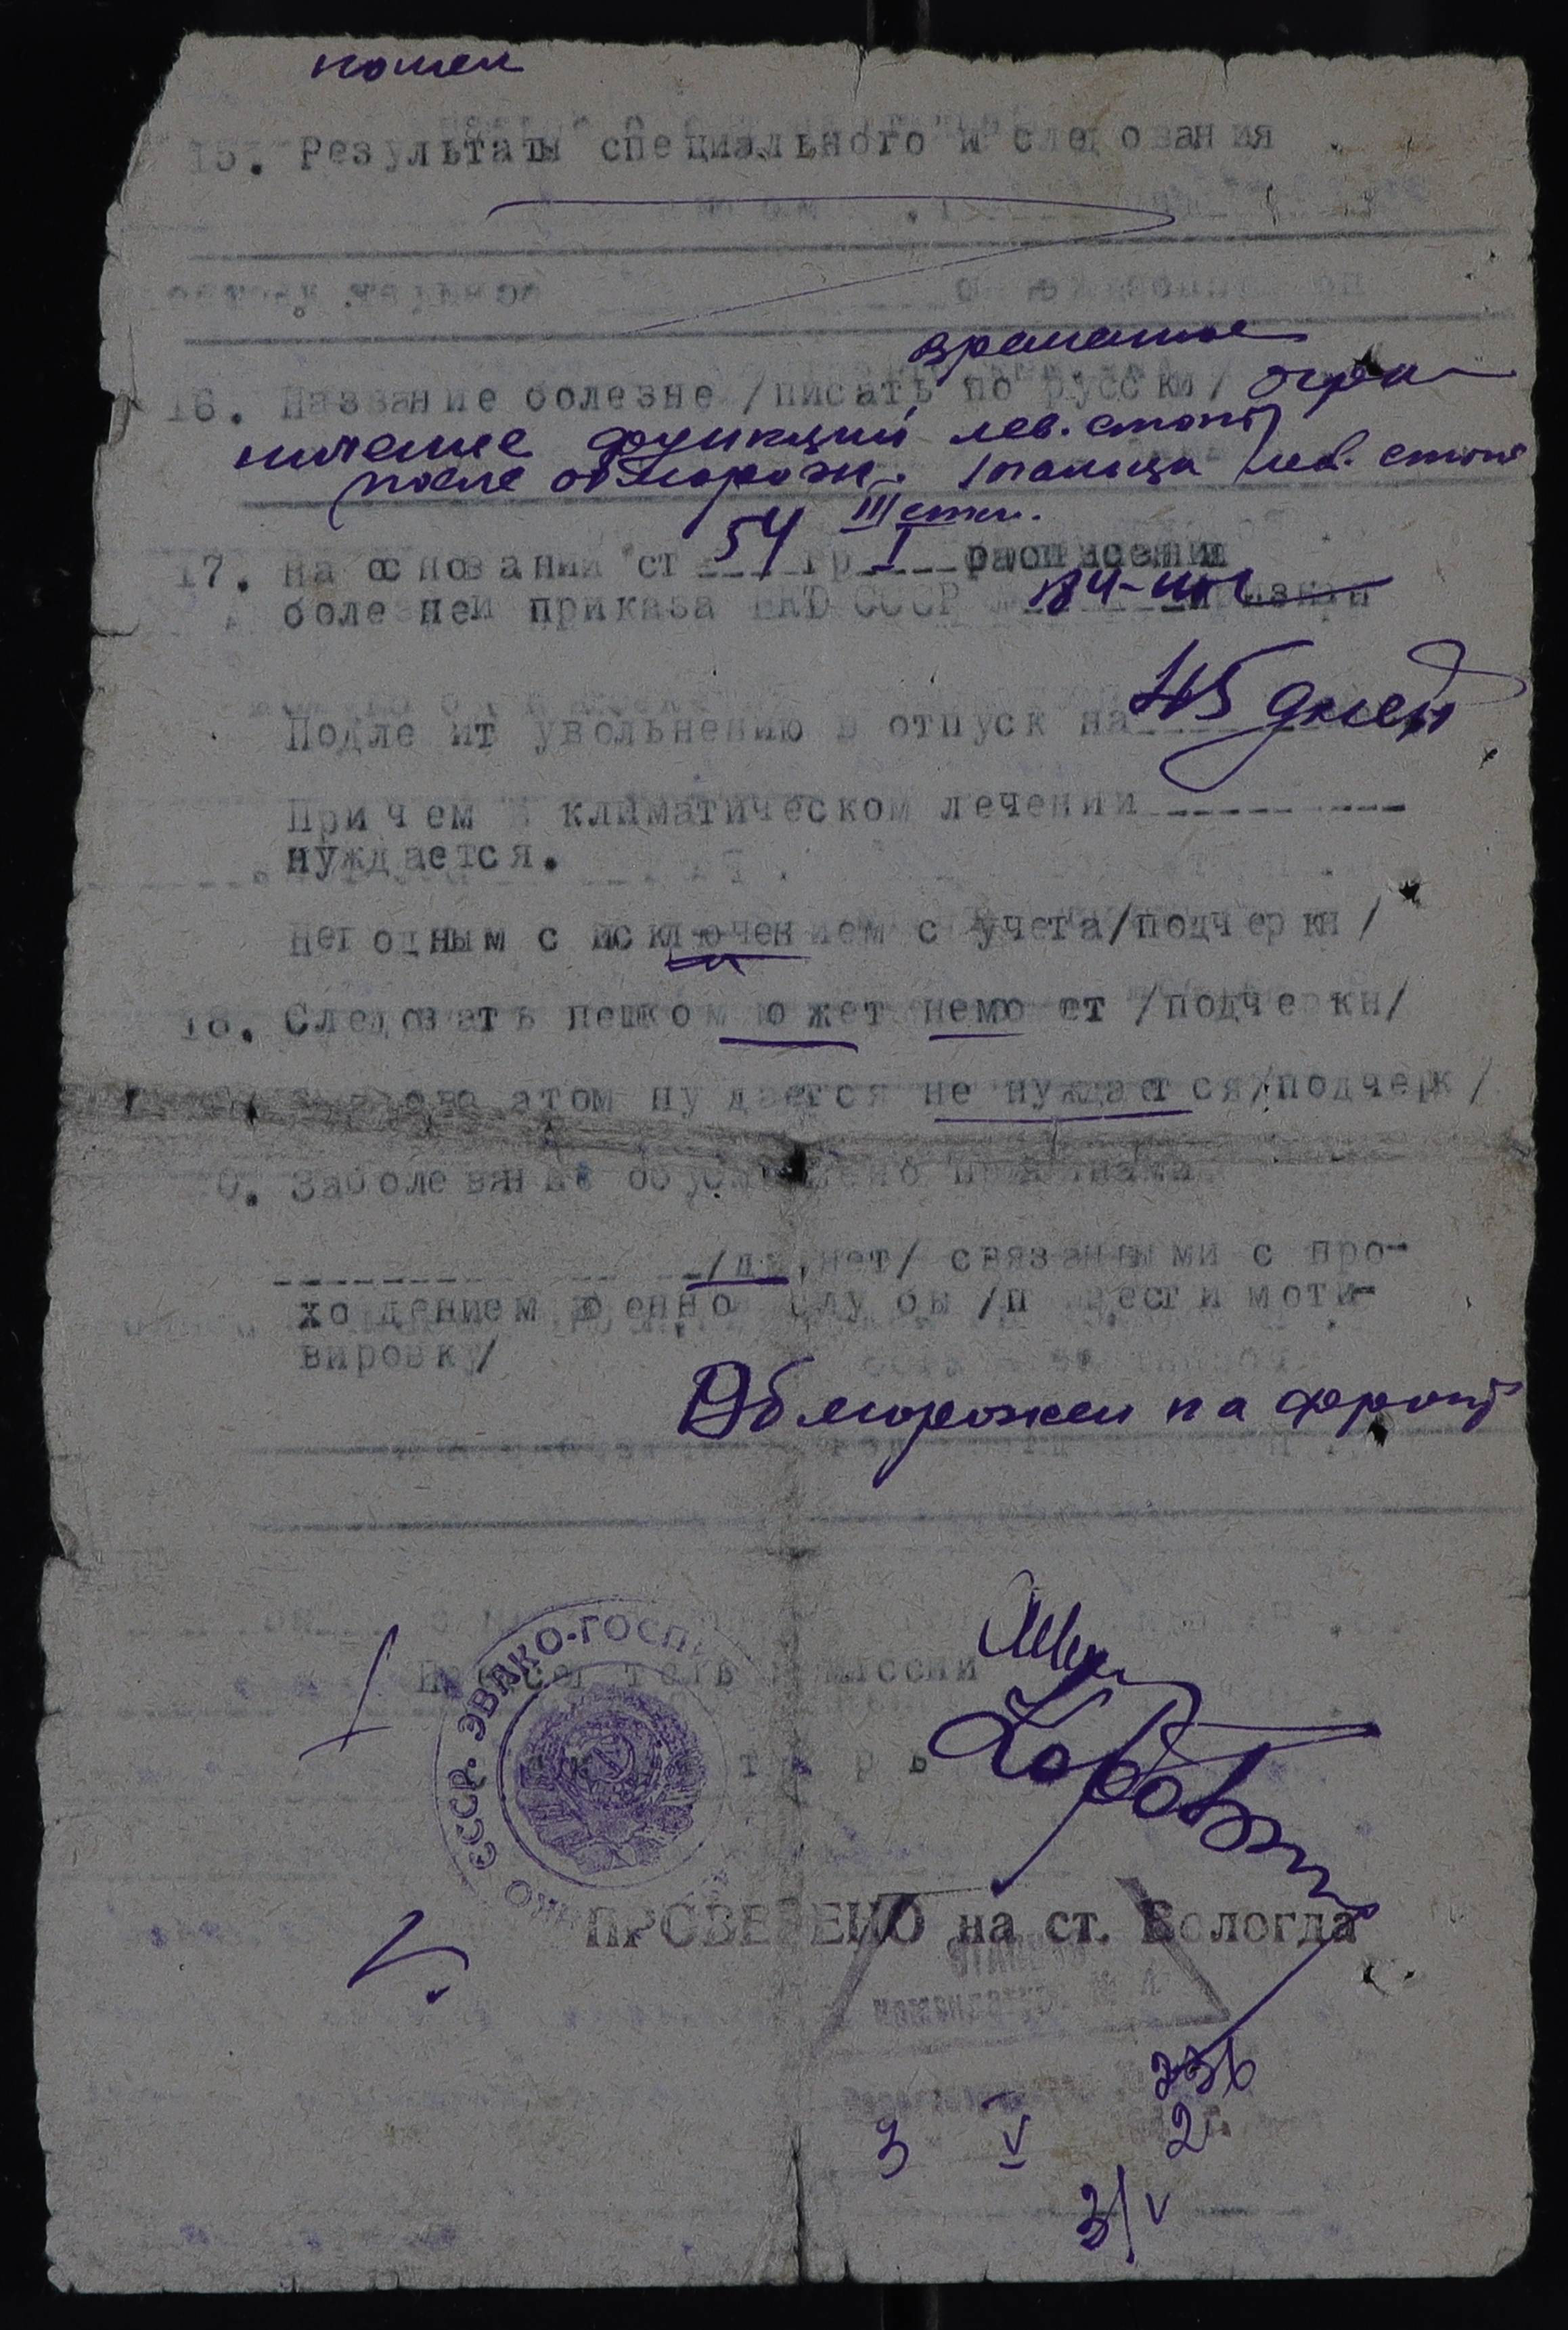 15. Результаты специального и следования
временное
16. Название болезне /писать по русски/ огра-
ничение функций лев. стопы
после отморож. I пальца лев. стопы
III степ.
17. на основании ст 54 гр I расписания
болезней приказа НКО СССР 184-
Подле ит увольнению в отпуск на 45 дней
При чем в климатическом лечении
нуждается.
негодным с исключением с учета/подчеркн/
18. Следовать пешком может немо ет /подчеркн/
атом ну дается не нуждается/подчерк/
0. Заболевание обусловлено причинами
/да, нет/ связанными с про-
хо дением военно слу бы /п вести моти-
вировку/
Обморожен на фронт
Председатель комиссии
ССР. ЭВАКО-ГОСПИ
ПРОВЕРЕНО на ст. Вологда
336
3 V 2 г.
3/V